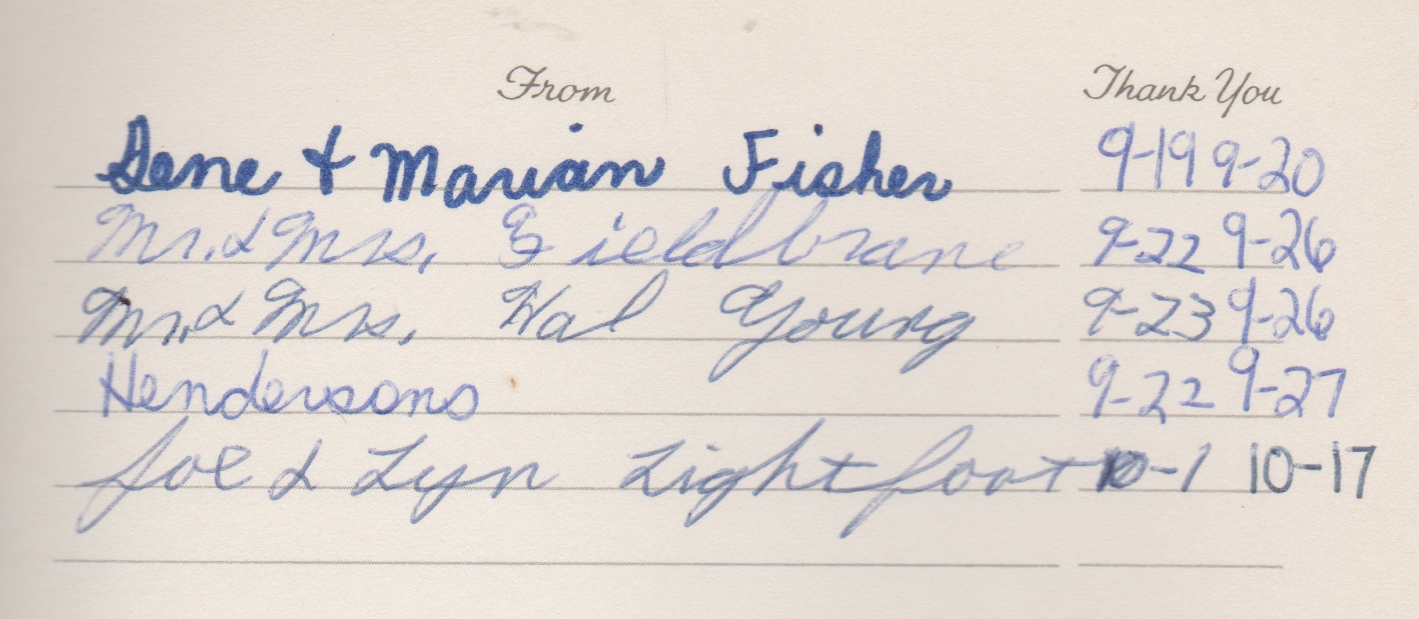 From Thank You
Gene & Marian Fisher 9-19 9-20
Mr. & Mrs. Fieldbrane 9-22 9-26
Mr. & Mrs. Hal Young 9-23 9-26
Hendersons 9-22 9-27
Joe & Lyn Lightfoot 10-1 10-17